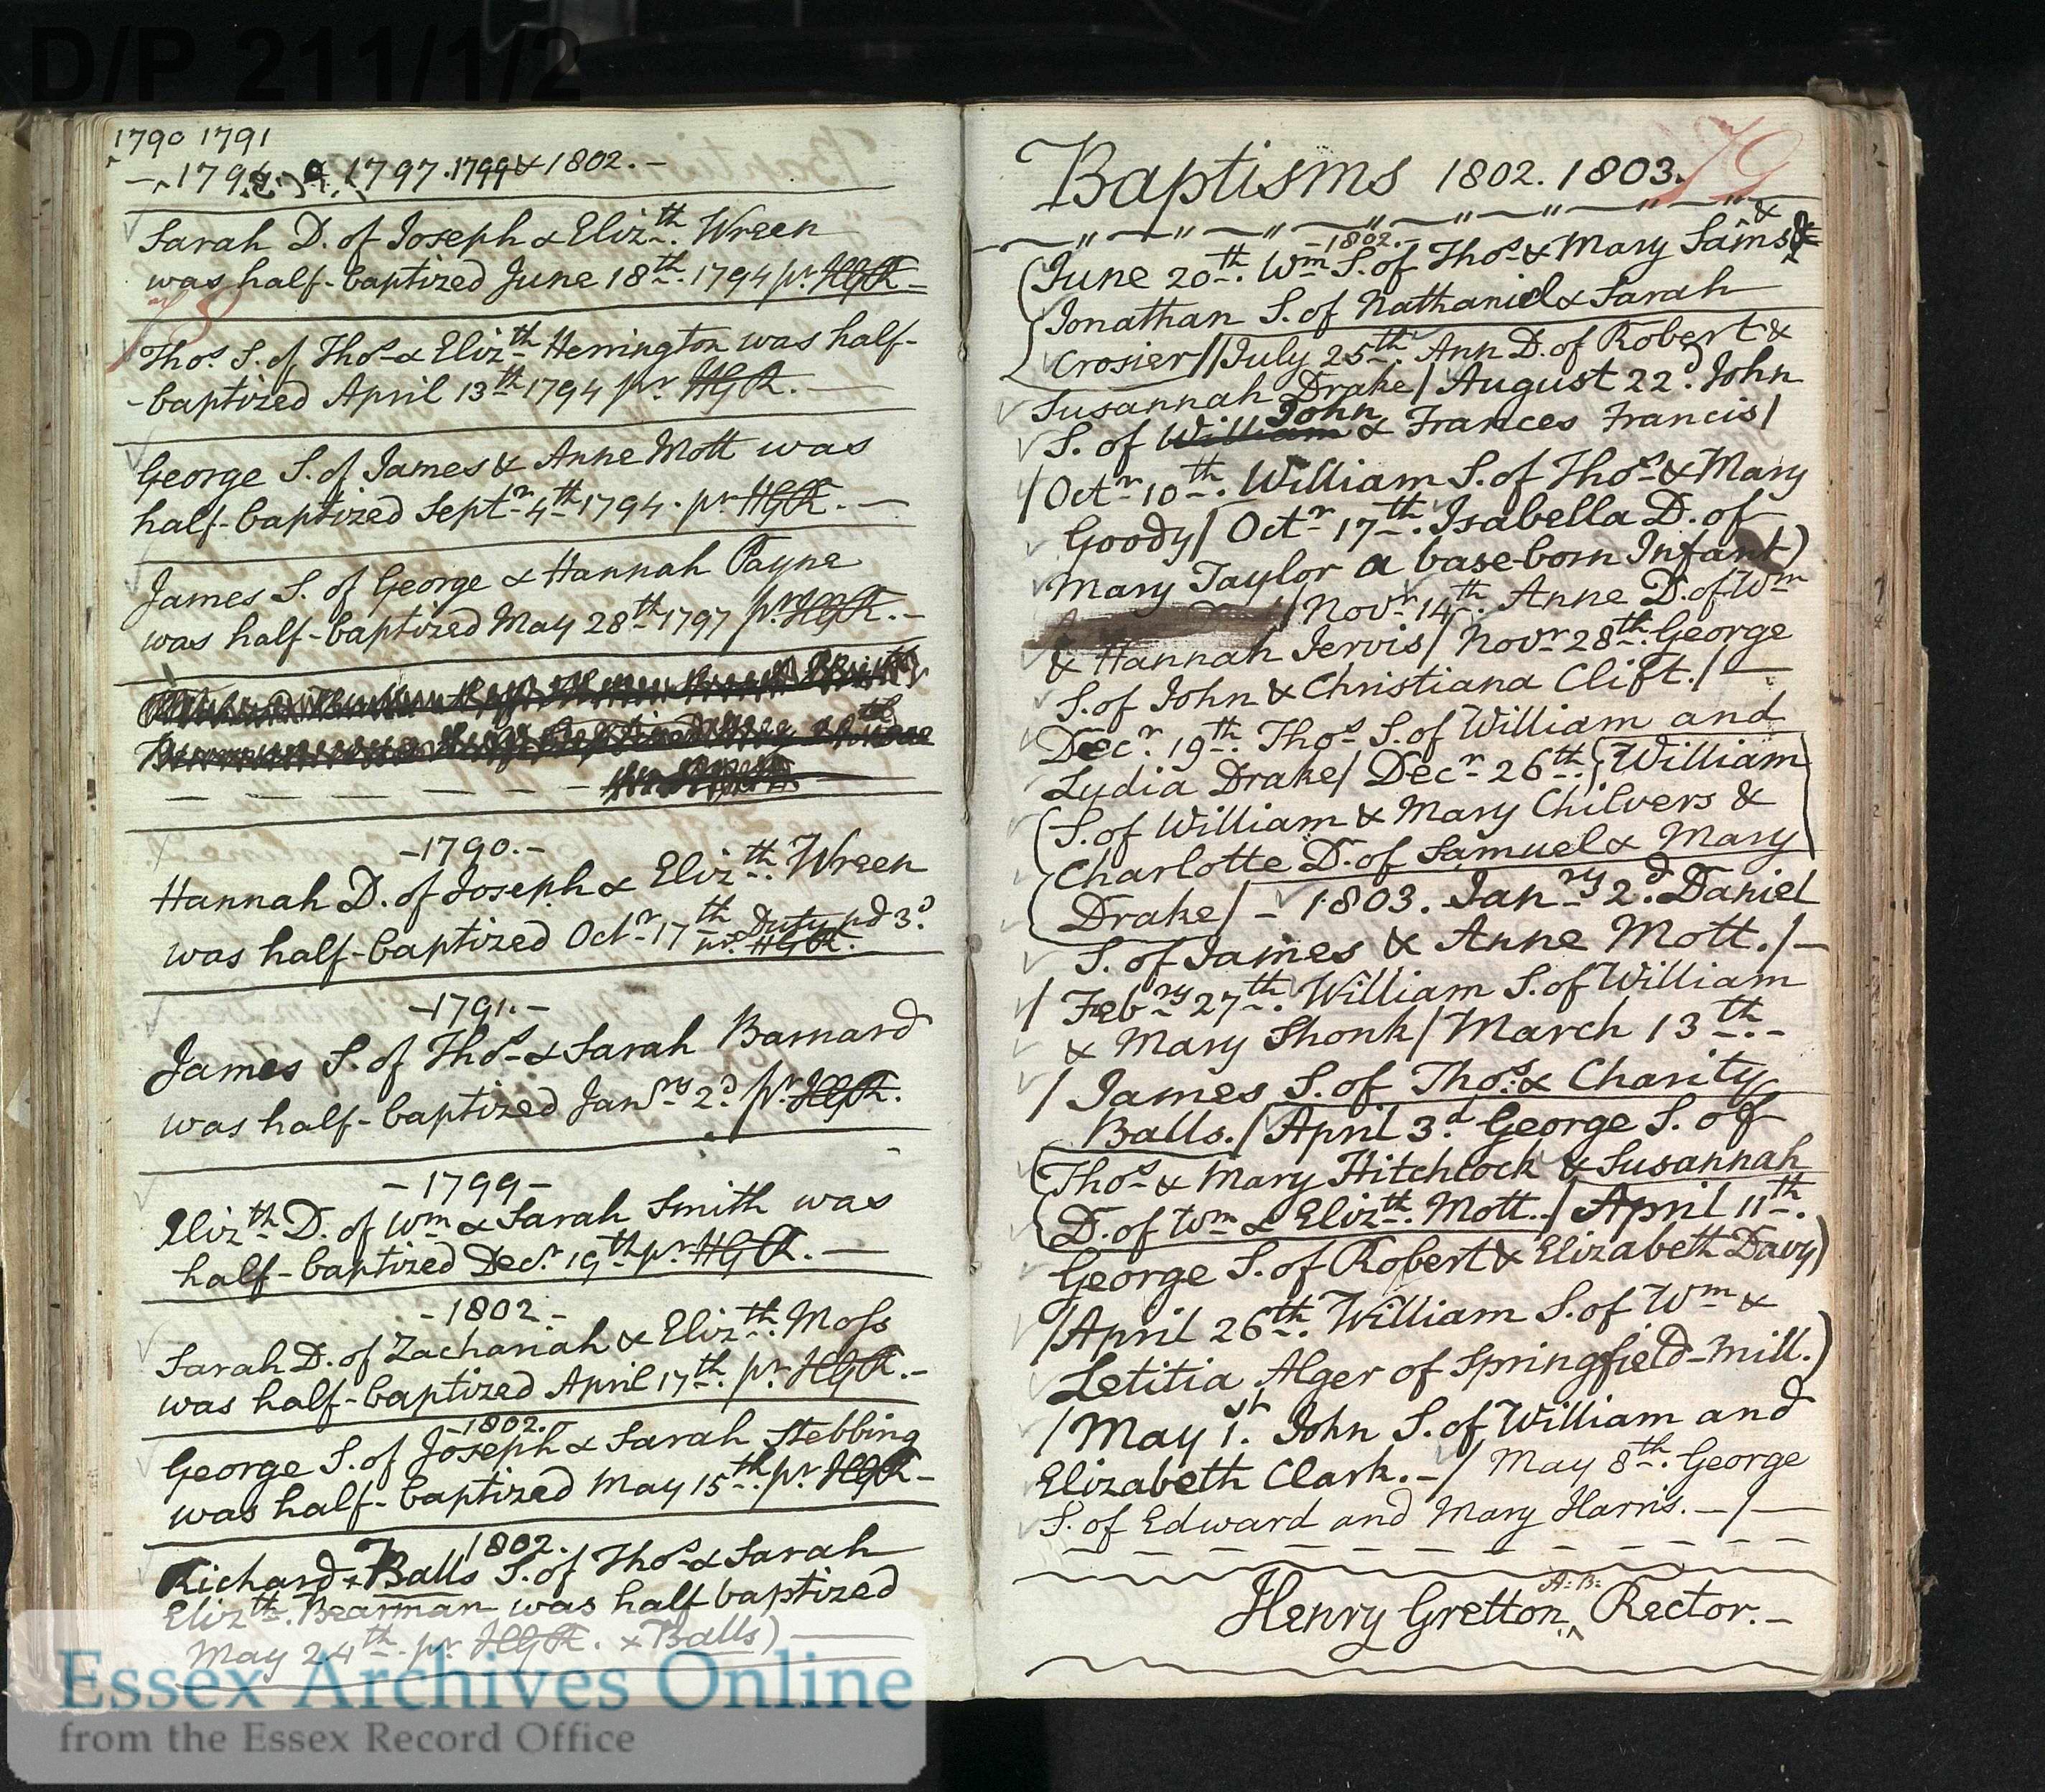 D/P 211/1/2
1790 1791
1797. 1799 & 1802. –
Sarah D. of Joseph & Elizth. Wreen
was half-baptized June 18th. 1794 pr. HGR –
78
Thos. S. of Thos. & Elizth Herrington was half-
-baptized April 13th 1794 pr. HGR. —
George S. of James & Anne Mott was
half-baptized Septr 4th 1794. pr HGR. —
James S. of George & Hannah Payne
was half-baptized May 28th 1797 pr. HGR. –
–1790.–
Hannah D. of Joseph & Elizth. Wreen
was half-baptized Octr 17th Duty pd 3d.
pr. HGR.
–1791.–
James S. of Thos. & Sarah Barnard
was half-baptized Janry 2d. pr. HGR.
–1799–
Elizth D. of Wm & Sarah Smith was
half-baptized Decr. 19th pr HGR. —
–1802.–
Sarah D. of Zachariah & Elizth. Moss
was half-baptized April 17th. pr. HGR. –
–1802.
George S. of Joseph & Sarah Stebbing
was half-baptized May 15th. pr. HGR –
1802.
Richard + Balls S. of Thos. & Sarah
Elizth. Bearman was half baptized
May 24th. pr. HGR. + Balls) —
Baptisms 1802. 1803.
79
–1802.–
June 20th. Wm S. of Thos. & Mary Sams &
Jonathan S. of Nathaniel & Sarah
Crosier / July 25th. Ann D. of Robert &
Susannah Drake / August 22d. John
John
S. of William & Frances Francis /
/ Octr 10th. William S. of Thos. & Mary
Goody / Octr 17th. Isabella D. of
Mary Taylor a base-born Infant)
/ Novr 14th. Anne D. of Wm
& Hannah Jervis / Novr 28th. George
S. of John & Christiana Clift. / —
Decr. 19th. Thos S. of William and
Lydia Drake / Decr 26th. William
S. of William & Mary Chilvers &
Charlotte D. of Samuel & Mary
Drake / – 1803. Janry 2d. Daniel
S. of James & Anne Mott. / –
/ Febry 27th. William S. of William
& Mary Shonk / March 13th. –
/ James S. of Thos. & Charity
Balls. / April 3d George S. of
Thos & Mary Hitchcock & Susannah
D. of Wm & Elizth. Mott. / April 11th.
George S. of Robert & Elizabeth Davy)
/ April 26th. William S. of Wm &
Letitia Alger of Springfield-Mill.)
/ May 1st. John S. of William and
Elizabeth Clark. – / May 8th. George
S. of Edward and Mary Harris. – / —
Henry Gretton, A: B: Rector. –
Essex Archives Online
from the Essex Record Office